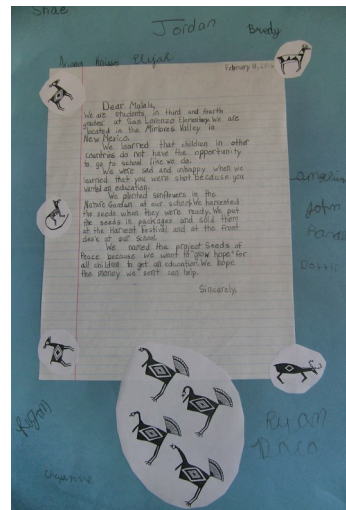 Shae
Jordan
Brody
Elijah
February 11,
Dear Malala,
We are students in third and fourth
grades at San Lorenzo Elementary. We are
located in the Mimbres Valley in
New Mexico.
We learned that children in other
countries do not have the opportunity
to go to school like we do.
We were sad and unhappy when we
learned that you were shot because you
wanted an education.
We planted sunflowers in the
Nature Garden at our school. We harvested
the seeds when they were ready. We put
the seeds in packages and sold them
at the Harvest Festival and at the front
desk at our school.
We named the project Seeds of
Peace because we want to "grow hope" for
all children to get an education. We hope
the money we sent can help.
Sincerely,
John
Ryan